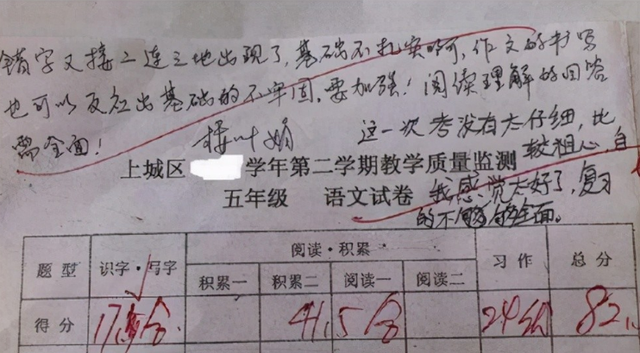 错字又接二连三地出现了,基础不扎实啊,作文的书写
也可以反应出基础的不牢固,要加强!阅读理解的回答
需全面!
这一次考没有太仔细,比
较粗心,自
我感觉太好了,复习
的不够全面。
上城区 学年第二学期教学质量监测
五年级 语文试卷
题型 识字·写字 阅读·积累 习作 总分
积累一 积累二 阅读一 阅读二
得分 17.5分 41.5分 24分 82